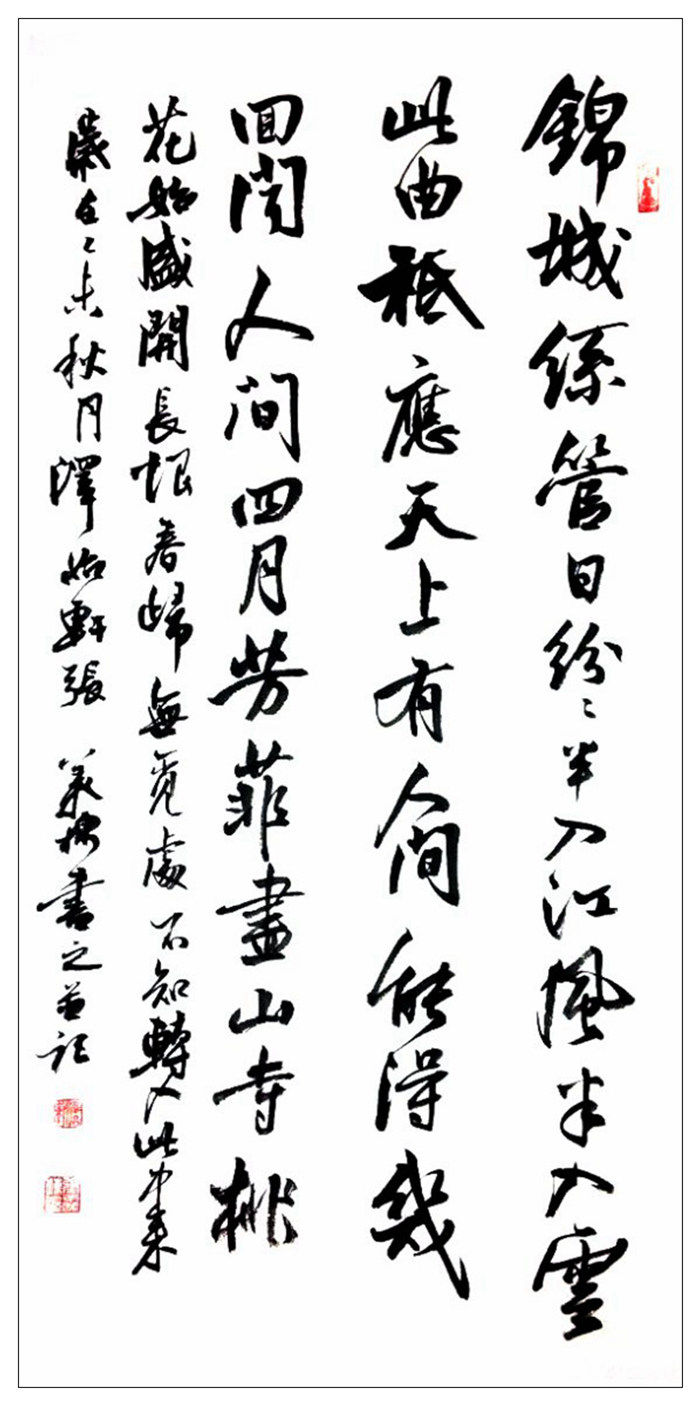 錦城絲管日紛〻半入江風半入雲
此曲祗應天上有人間能得幾
回聞人間四月芳菲盡山寺桃
花始盛開長恨春歸無覓處不知轉入此中來
歲在乙未秋月澤始軒張書之並記